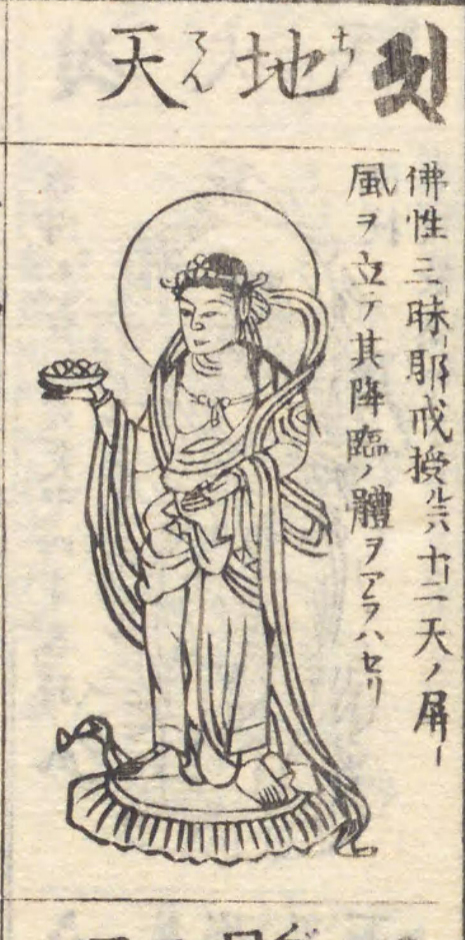 地天
ち てん
佛性三昧耶戒授ルニハ十二天ノ屏ー
風ヲ立テ其降臨ノ體ヲアラハセリ